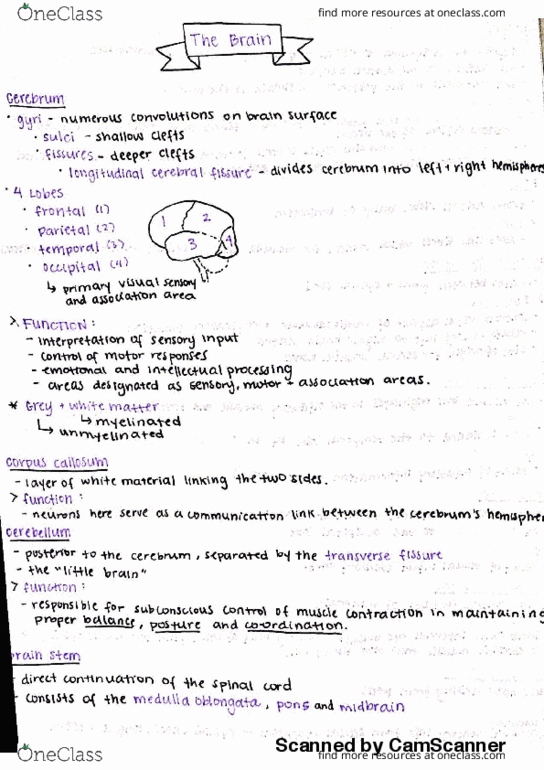 OneClass
find more resources at oneclass.com
The Brain
cerebrum
· gyri - numerous convolutions on brain surface
· sulci - shallow clefts
· fissures - deeper clefts
· longitudinal cerebral fissure - divides cerebrum into left + right hemispheres
· 4 Lobes
· frontal (1)
· parietal (2)
· temporal (3)
· occipital (4)
↳ primary visual sensory
and association area
1
2
3
4
> Function:
- interpretation of sensory input
- control of motor responses
- emotional and intellectual processing
- areas designated as sensory, motor + association areas.
* Grey + white matter
↳ myelinated
↳ unmyelinated
corpus callosum
- layer of white material linking the two sides.
> function:
- neurons here serve as a communication link between the cerebrum's hemispher
cerebellum
- posterior to the cerebrum, separated by the transverse fissure
- the "little brain"
> function:
- responsible for subconscious control of muscle contraction in maintaining
proper balance, posture and coordination.
brain stem
- direct continuation of the spinal cord
- consists of the medulla oblongata, pons and midbrain
Scanned by CamScanner
OneClass
find more resources at oneclass.com